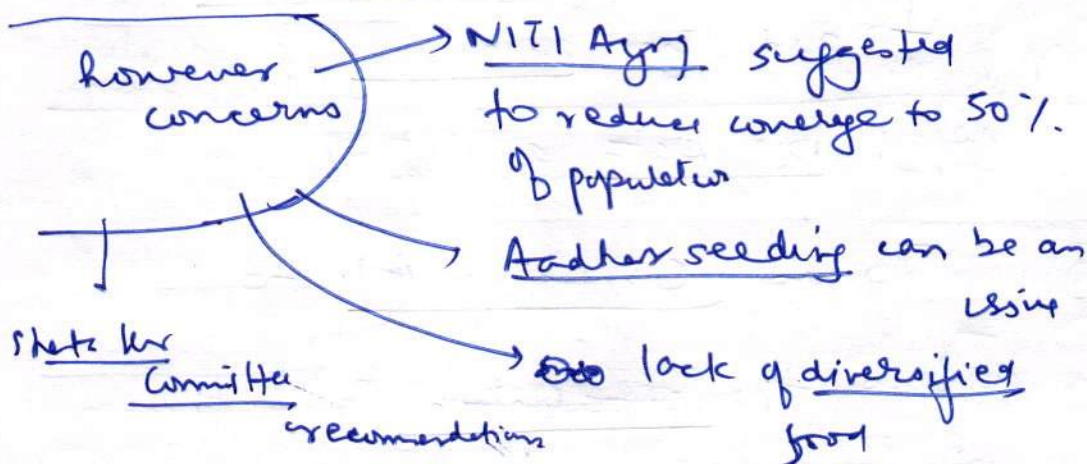 however
concerns
NITI Ayog suggested
to reduce converge to 50%.
of population
Aadhar seeding can be an
issue
lack of diversified
food
Committee
recommendations